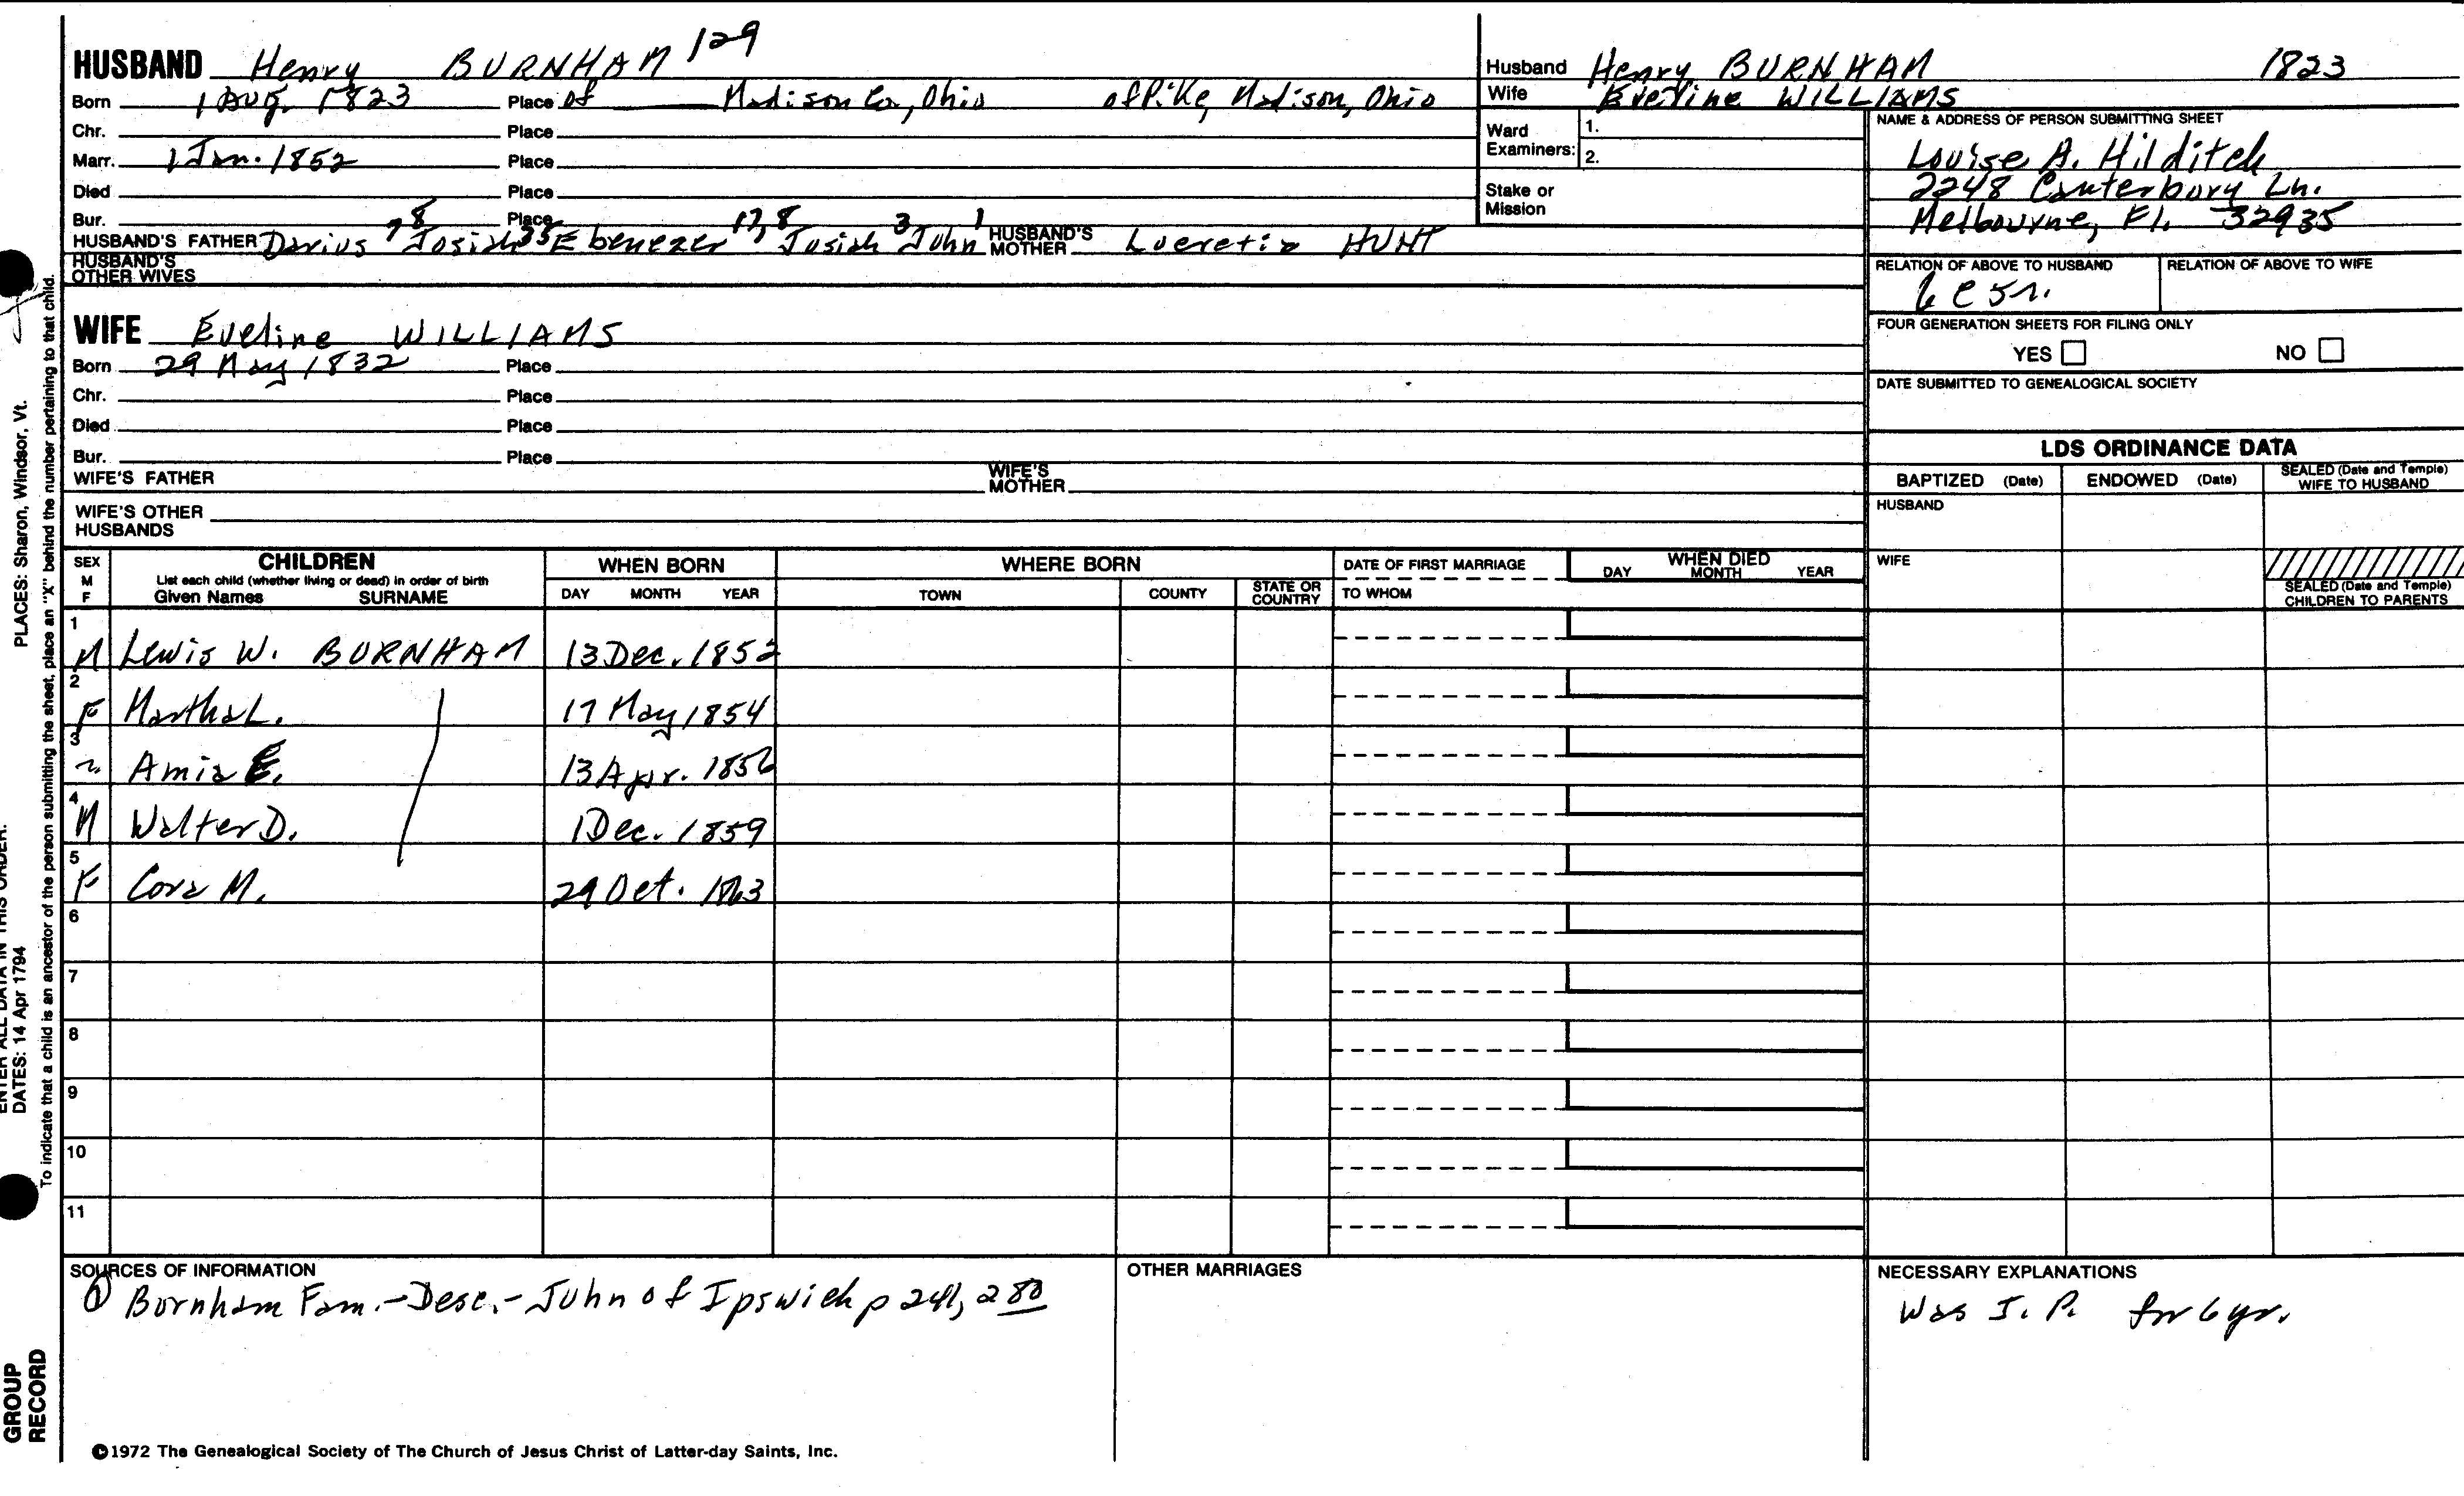 HUSBAND Henry BURNHAM 129
Born 1 Aug. 1823 Place of Madison Co, Ohio of Pike, Madison, Ohio
Chr. Place
Marr. 1 Jan. 1852 Place
Died Place
Bur. Place
HUSBAND'S FATHER Darius 78 Josiah 35 Ebenezer 17,8 Josiah 3 John 1 HUSBAND'S MOTHER Lucretia HUNT
HUSBAND'S OTHER WIVES
WIFE Eveline WILLIAMS
Born 29 May 1832 Place
Chr. Place
Died Place
Bur. Place
WIFE'S FATHER WIFE'S MOTHER
WIFE'S OTHER HUSBANDS
Husband Henry BURNHAM 1823
Wife Eveline WILLIAMS
Ward Examiners: 1.
2.
Stake or Mission
NAME & ADDRESS OF PERSON SUBMITTING SHEET
Louise A. Hilditch
2248 Canterbury Ln.
Melbourne, Fl. 32935
RELATION OF ABOVE TO HUSBAND RELATION OF ABOVE TO WIFE
6 C 5 r.
FOUR GENERATION SHEETS FOR FILING ONLY
YES NO
DATE SUBMITTED TO GENEALOGICAL SOCIETY
LDS ORDINANCE DATA
BAPTIZED (Date) ENDOWED (Date) SEALED (Date and Temple) WIFE TO HUSBAND
HUSBAND
WIFE
SEALED (Date and Temple) CHILDREN TO PARENTS
SEX M F CHILDREN WHEN BORN WHERE BORN DATE OF FIRST MARRIAGE WHEN DIED
List each child (whether living or dead) in order of birth
Given Names SURNAME DAY MONTH YEAR TOWN COUNTY STATE OR COUNTRY TO WHOM DAY MONTH YEAR
1 M Lewis W. BURNHAM 13 Dec. 1852
2 F Martha L. 17 May 1854
3 Amia E. 13 Apr. 1856
4 M Walter D. 1 Dec. 1859
5 F Cora M. 29 Oct. 1863
6
7
8
9
10
11
SOURCES OF INFORMATION
① Burnham Fam.-Desc.-John of Ipswich p 241, 280
OTHER MARRIAGES
NECESSARY EXPLANATIONS
Was J. P. for 6 yr.
©1972 The Genealogical Society of The Church of Jesus Christ of Latter-day Saints, Inc.
To indicate that a child is an ancestor of the person submitting the sheet, place an "X" behind the number pertaining to that child.
PLACES: Sharon, Windsor, Vt.
ENTER ALL DATA IN THIS ORDER:
DATES: 14 Apr 1794
GROUP RECORD